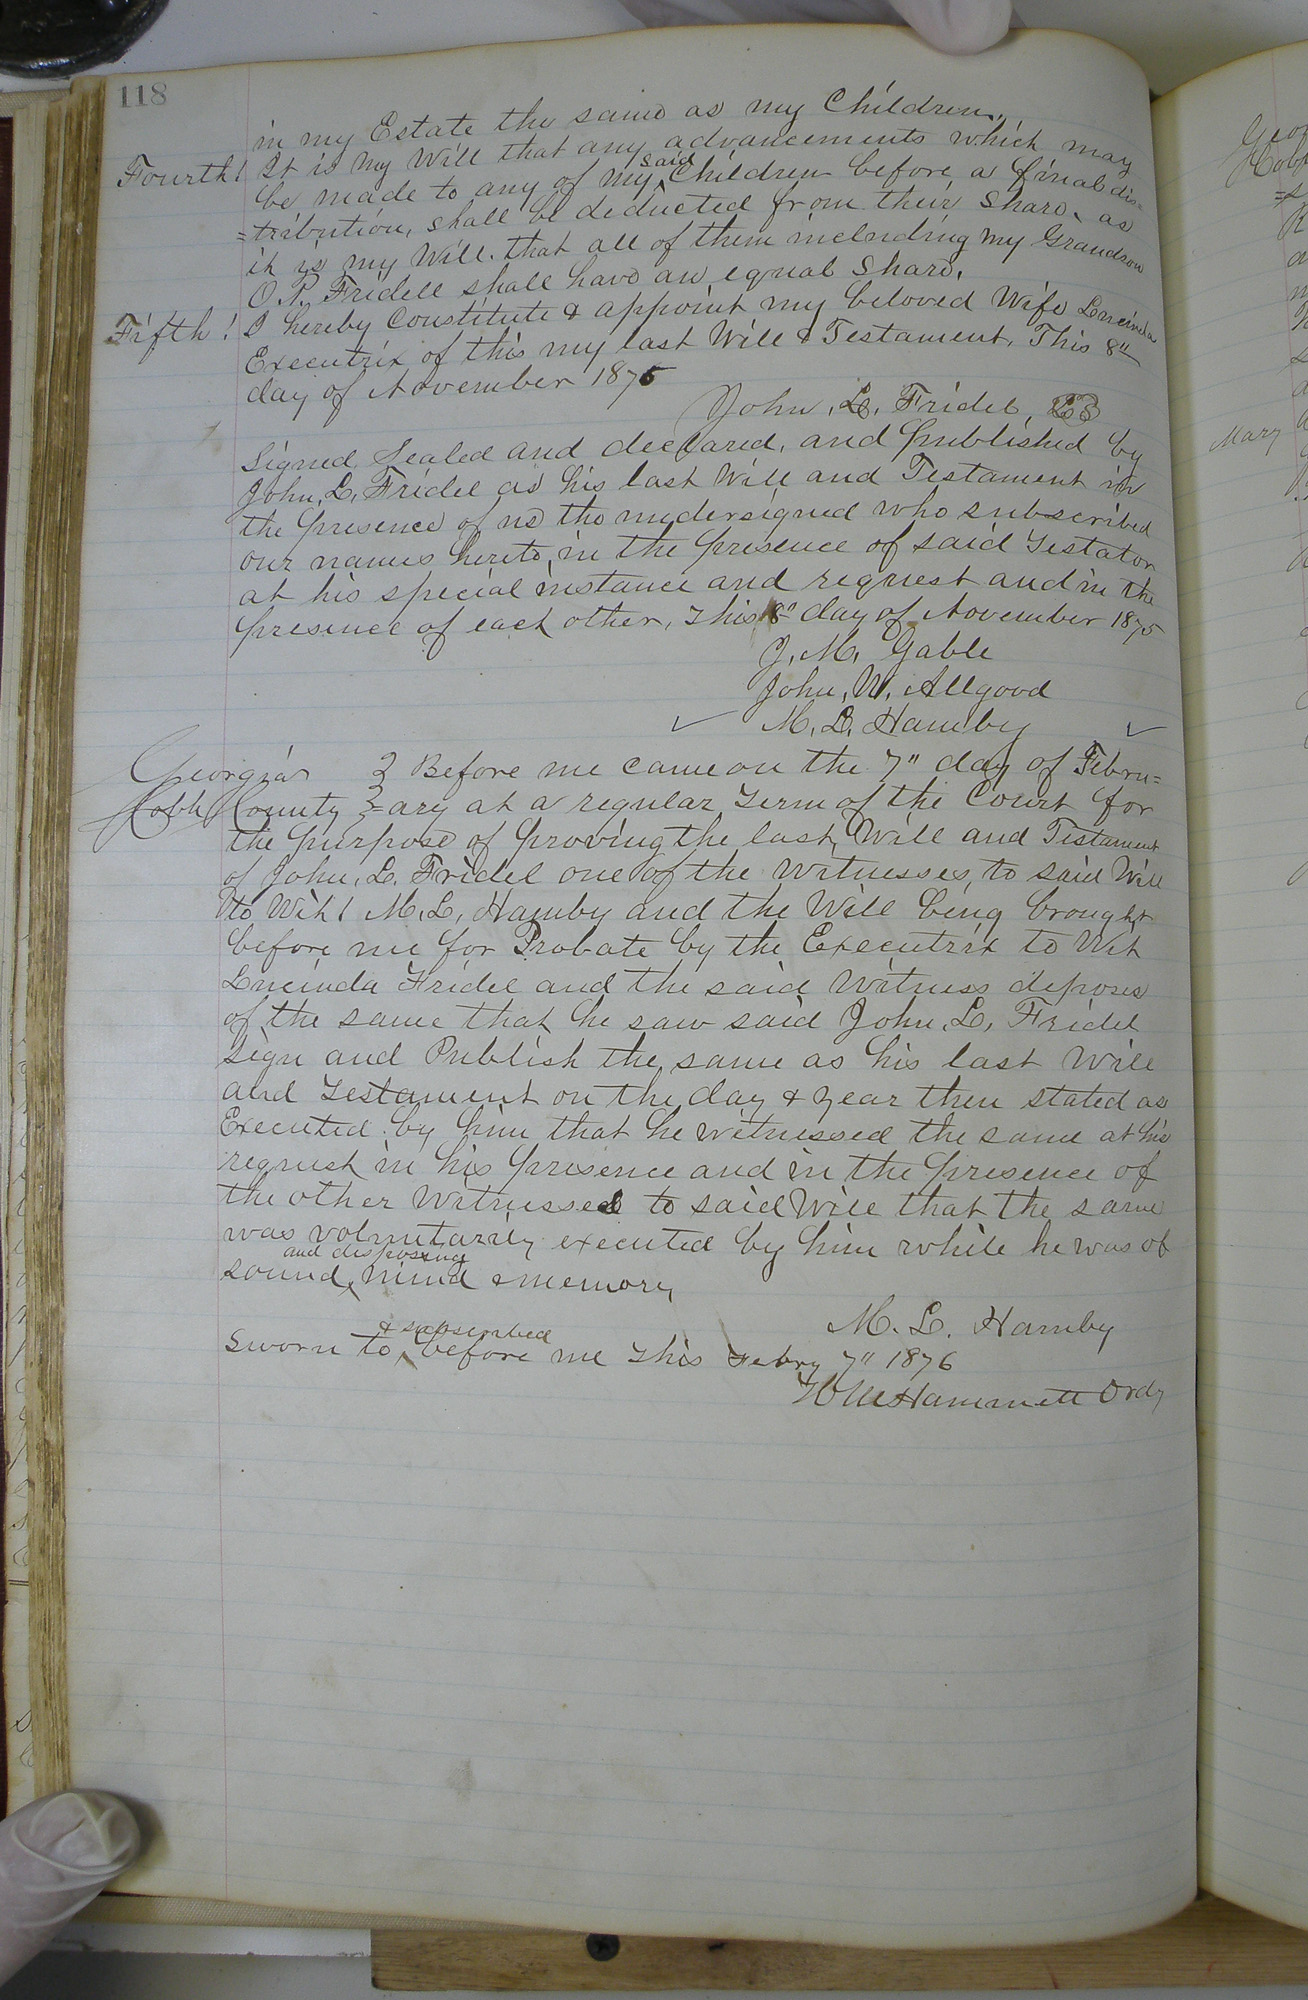 118
in my Estate the same as my Children.
Fourth! It is my Will that any advancements which may
be made to any of my said Children before a final dis=
=tribution, shall be deducted from their Share, as
it is my Will. that all of them including my Grandson
O. P. Fridell shall have an equal Share.
Fifth! I hereby Constitute & appoint my beloved Wife Lucinda
Executrix of this my last Will & Testament. This 8"
day of November 1875
John, L. Fridel, LS
Signed, Sealed and declared, and published by
John, L, Fridel as his last Will and Testament in
the presence of us the undersigned who subscribed
our names hereto, in the presence of said Testator
at his special instance and request and in the
presence of each other, This 8" day of November 1875
J. M. Gable
John, W. Allgood
M. L. Hamby
Georgia } Before me came on the 7" day of Febru=
Cobb County } =ary at a regular Term of the Court for
the purpose of proving the last Will and Testament
of John, L. Fridel one of the Witnesses, to said Will
to Wit! M. L, Hamby and the Will being brought
before me for Probate by the Executrix to Wit
Lucinda Fridel and the said Witness deposes
of the same that he saw said John, L, Fridel
sign and Publish the same as his last Will
and Testament on the day & year then stated as
Executed by him that he witnessed the same at his
request in his presence and in the presence of
the other Witnesses to said Will that the same
was voluntarily executed by him while he was of
sound and disposing mind & memory,
M. L. Hamby
Sworn to & subscribed before me This Febry 7" 1876
W M Hammett Ordy
Mary